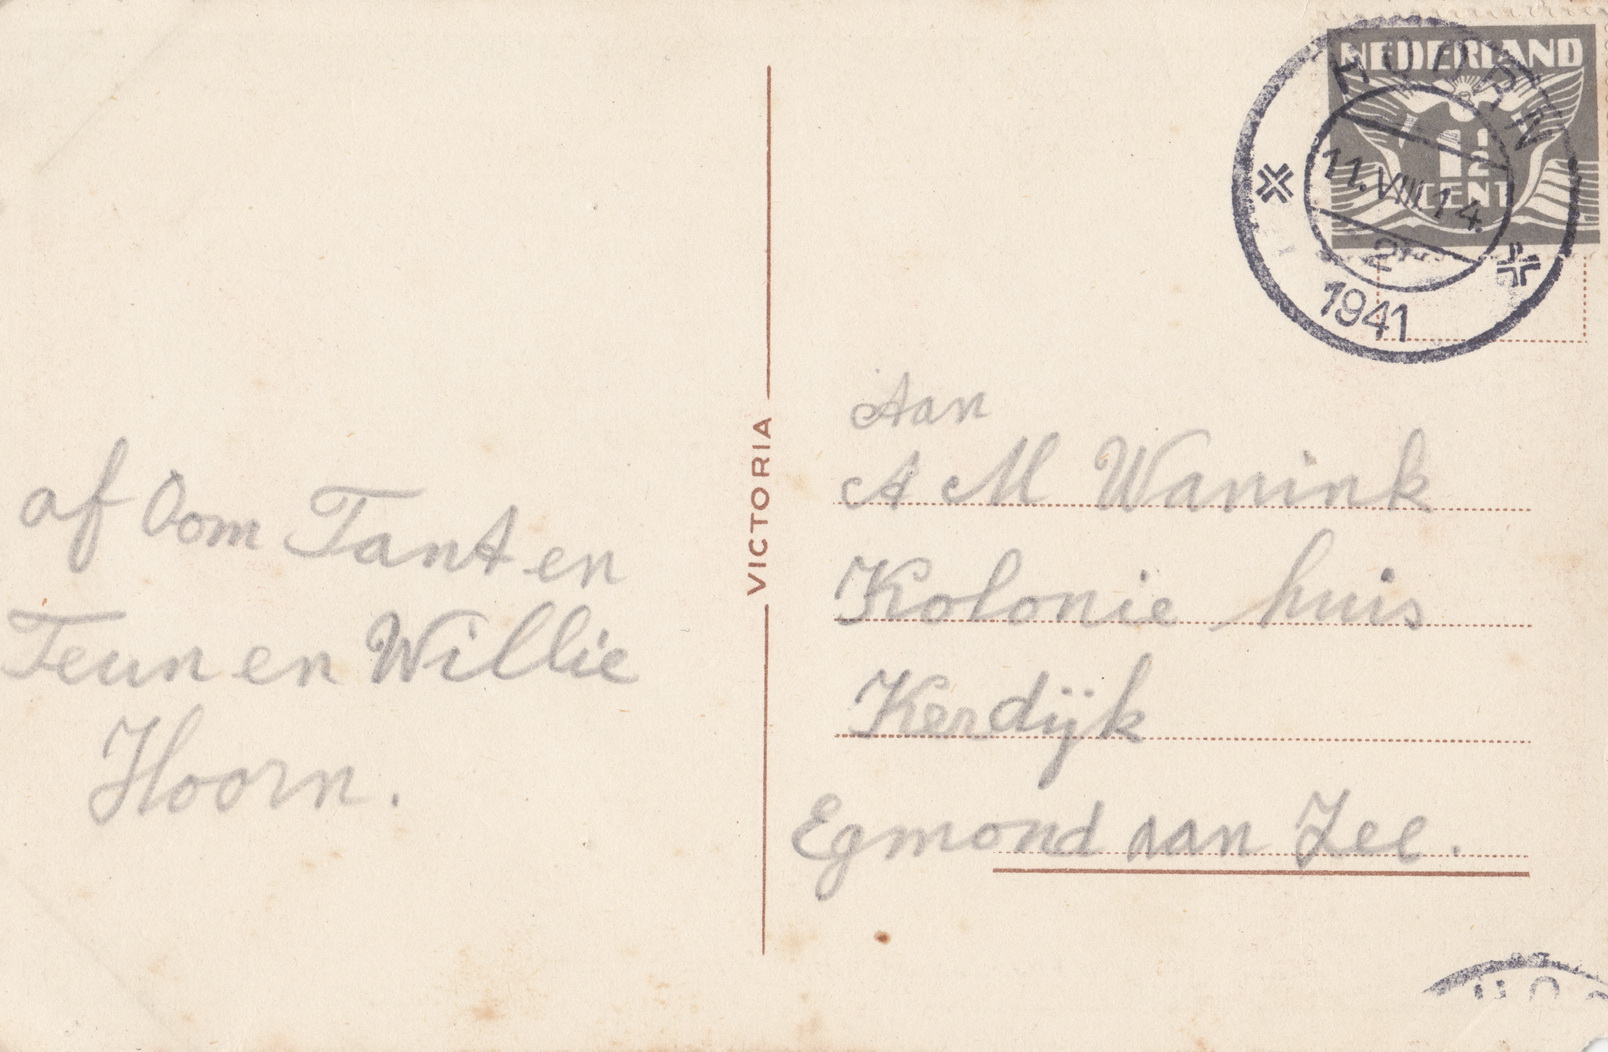 af Oom Tant en
Teun en Willie
Hoorn.
VICTORIA
NEDERLAND
1½
CENT
HOORN
11.VIII.14.
1941
Aan
A M Wanink
Kolonie huis
Kerdijk
Egmond aan Zee.